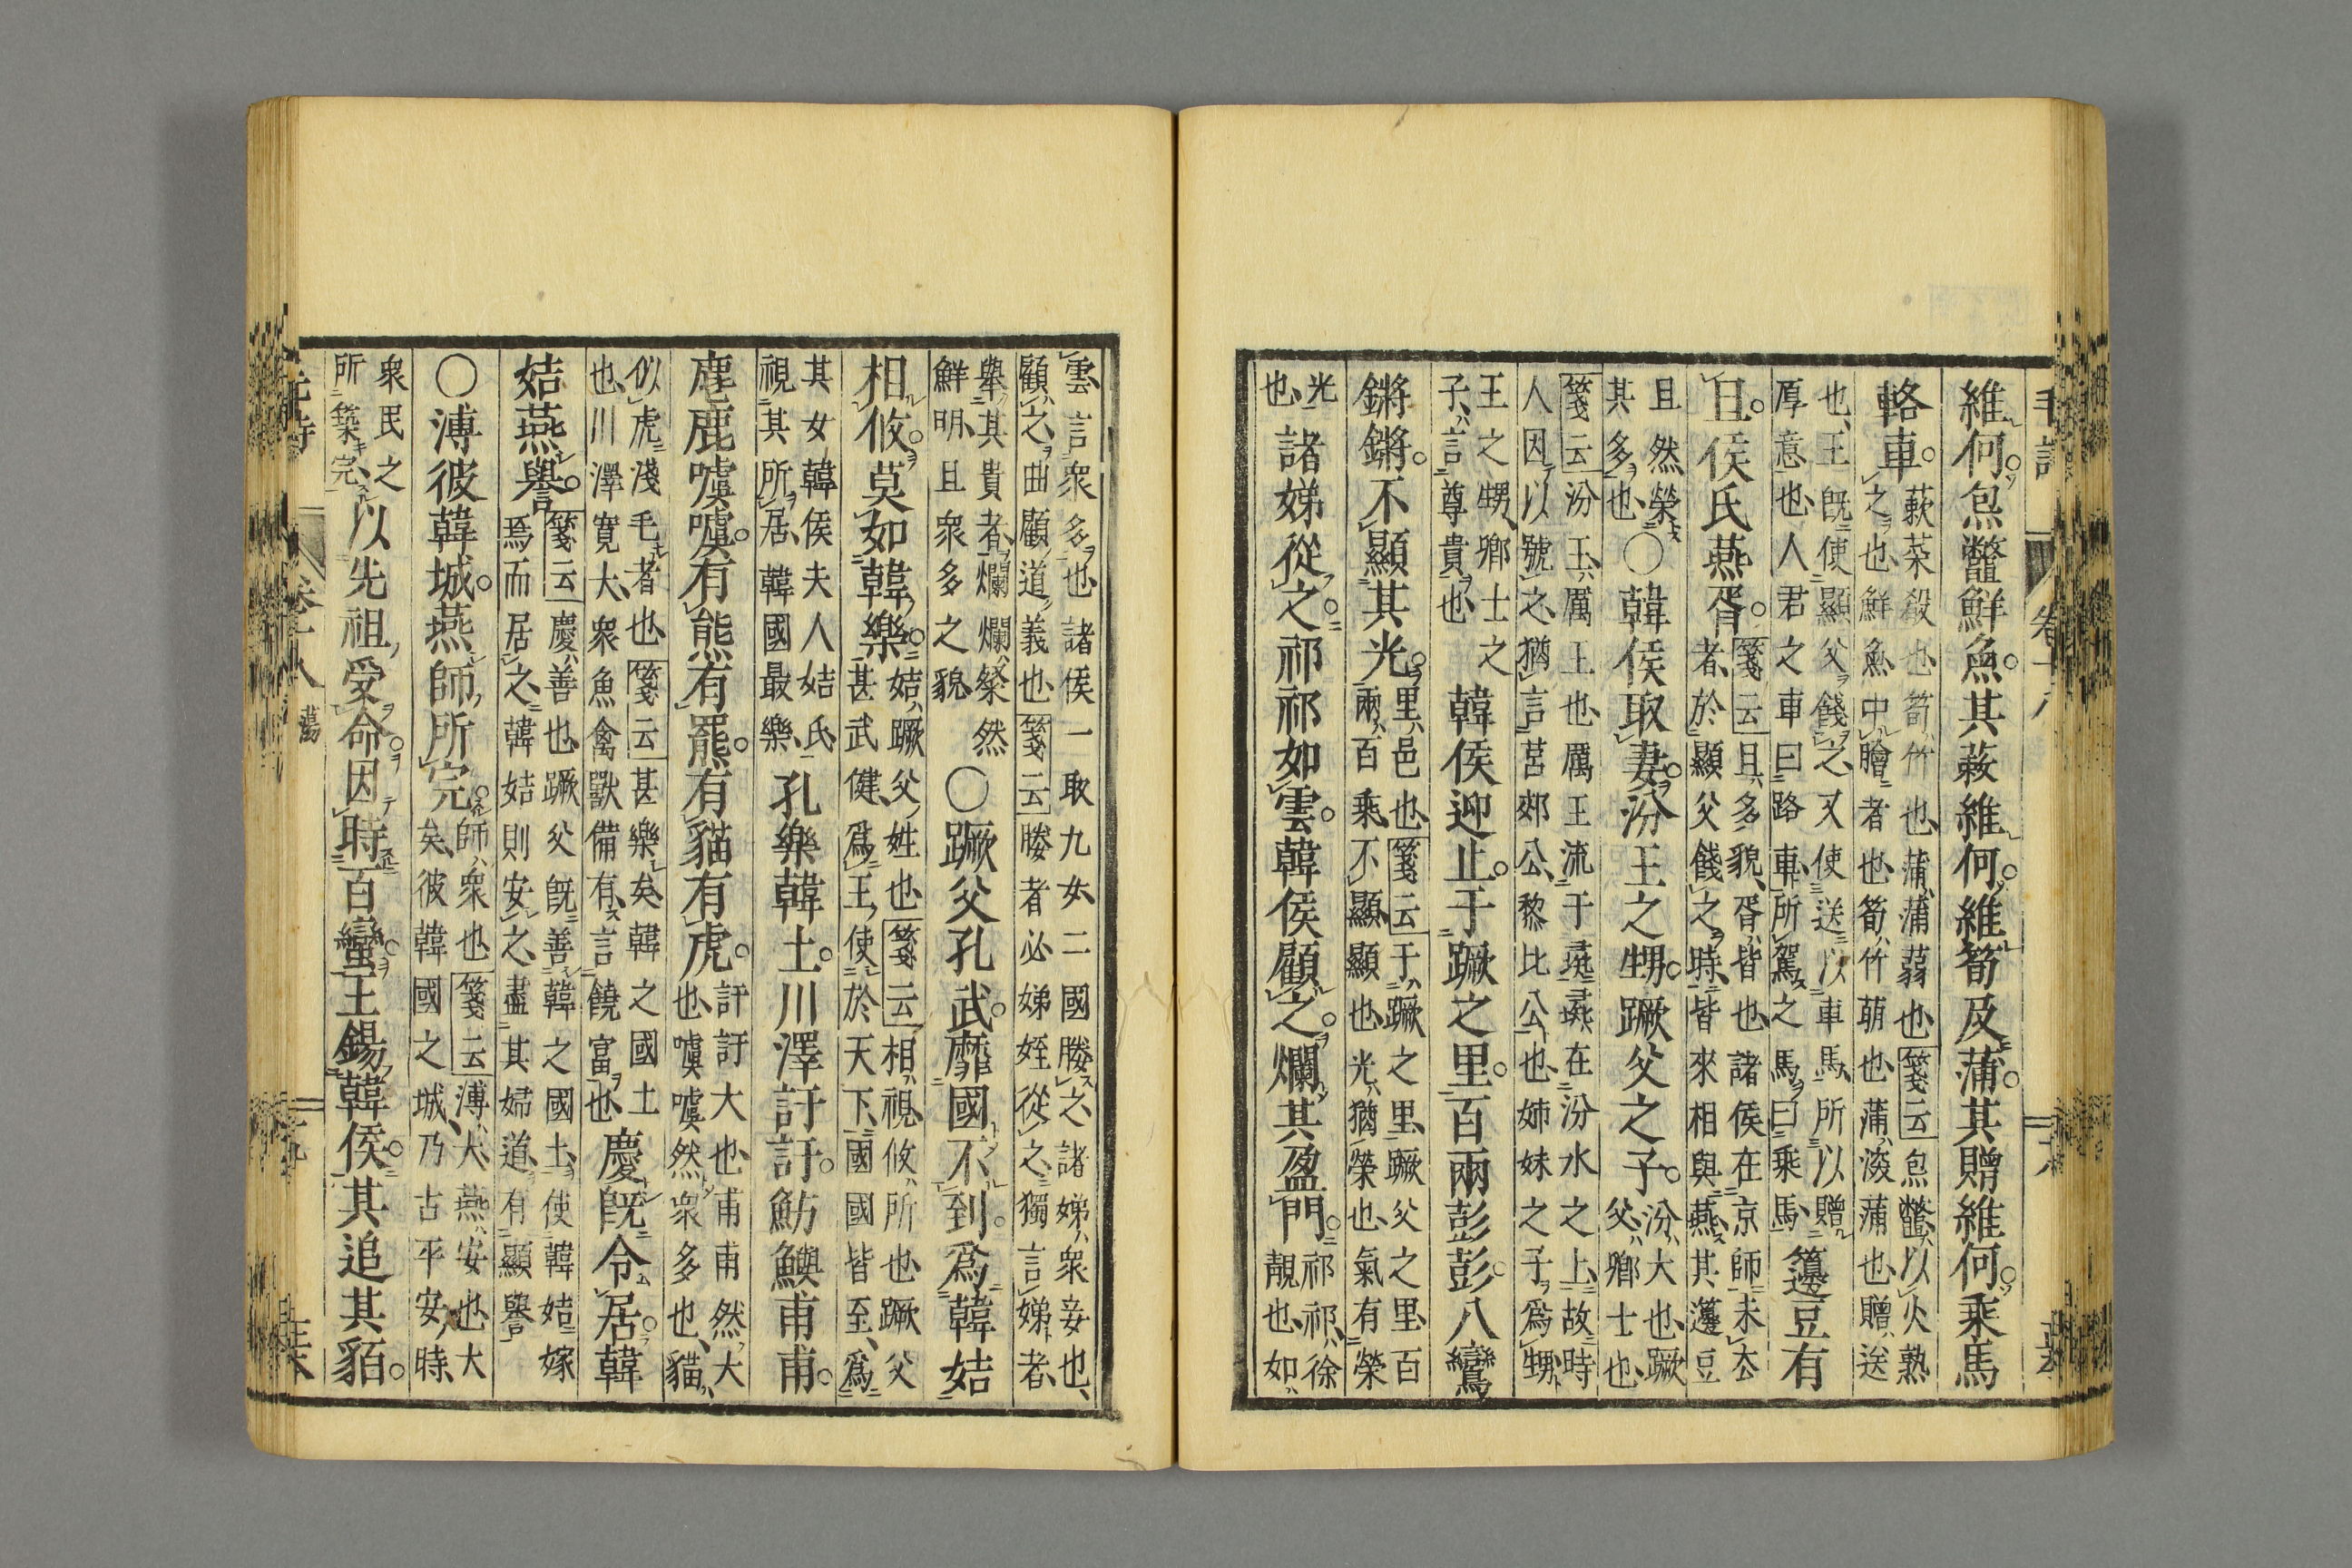 毛詩
卷十八
維何。炰鼈鮮魚。其蔌維何。維筍及蒲。其贈維何。乘馬
輅車。
蔌菜殽也筍竹也蒲蒲蒻也箋云炰鼈以火熟
之也鮮魚中膾者也筍竹萌也蒲深蒲也贈送
也王既使顯父餞之又使送以車馬所以贈
厚意也人君之車曰路車所駕之馬曰乘馬
籩豆有
且。侯氏燕胥。
箋云且多貌胥皆也諸侯在京師未去
者於顯父餞之時皆來相與燕其籩豆
且然榮
其多也
○韓侯取妻。汾王之甥。蹶父之子。
汾大也蹶
父卿士也
箋云汾王厲王也厲王流于彘彘在汾水之上故時
人因以號之猶言莒郊公黎比公也姉妹之子爲甥
王之甥卿士之
子言尊貴也
韓侯迎止。于蹶之里。百兩彭彭。八鸞
鏘鏘。不顯其光。
里邑也箋云于蹶之里蹶父之里百
兩百乘不顯顯也光猶榮也氣有榮
光
也
諸娣從之。祁祁如雲。韓侯顧之。爛其盈門。
祁祁徐
靚也如
雲言衆多也諸侯一取九女二國媵之諸娣衆妾也
顧之曲顧道義也箋云媵者必娣姪從之獨言娣者
舉其貴者爛爛粲然
鮮明且衆多之貌
○蹶父孔武。靡國不到。爲韓姞
相攸。莫如韓樂。
姞蹶父姓也箋云相視攸所也蹶父
甚武健爲王使於天下國國皆至爲
其女韓侯夫人姞氏
視其所居韓國最樂
孔樂韓土。川澤訏訏。魴鱮甫甫。
麀鹿噳噳。有熊有羆。有貓有虎。
訏訏大也甫甫然大
也噳噳然衆多也貓
似虎淺毛者也箋云甚樂矣韓之國土
也川澤寬大衆魚禽獸備有言饒富也
慶既令居韓
姞燕譽。
箋云慶善也蹶父既善韓之國土使韓姞嫁
焉而居之韓姞則安之盡其婦道有顯譽
○溥彼韓城。燕師所完。
師衆也箋云溥大燕安也大
矣彼韓國之城乃古平安時
衆民之
所築完
以先祖受命。因時百蠻。王錫韓侯。其追其貊。